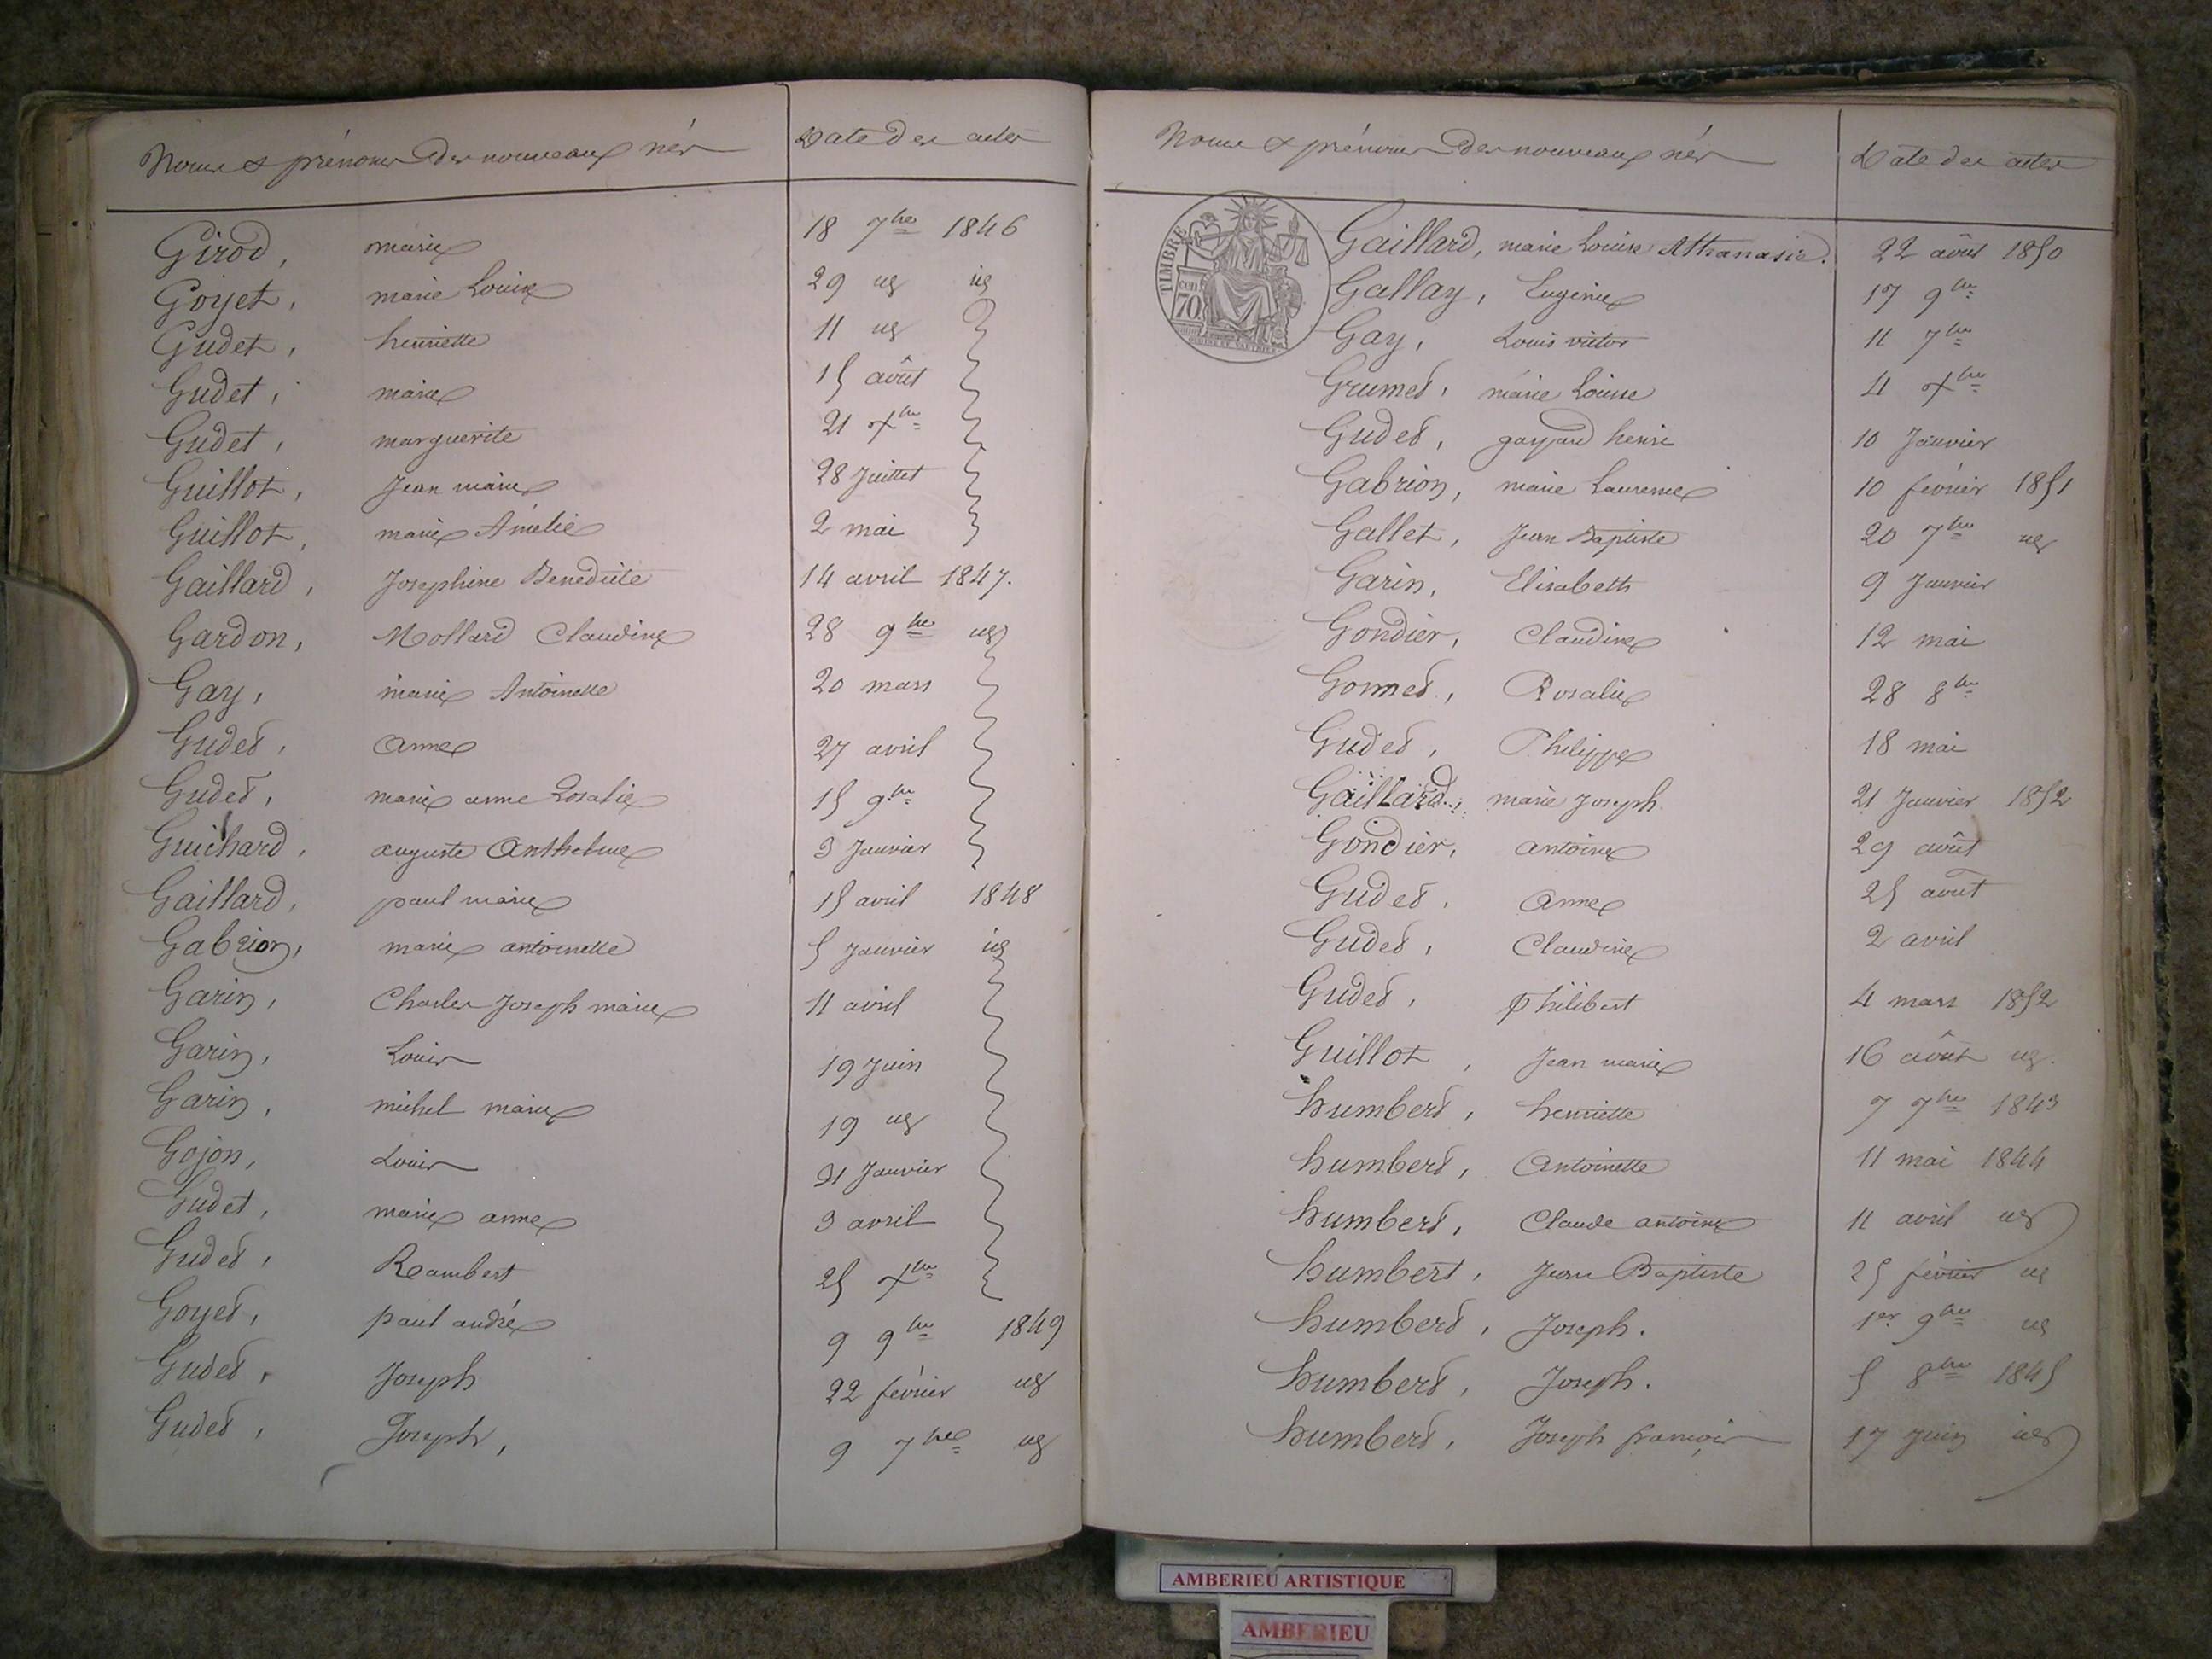 Noms & prénoms des nouveaux nés Date des actes
Girod, marie 18 7bre 1846
Goyet, marie Louise 29 id id
Gudet, henriette 11 id
Gudet, marie 15 août
Gudet, marguerite 21 Xbre
Guillot, Jean marie 28 Juillet
Guillot, marie Amélie 2 mai
Gaillard, Josephine Benedicte 14 avril 1847.
Gardon, Mollard Claudine 28 9bre id
Gay, marie Antoinette 20 mars
Gudet, Anne 27 avril
Gudet, marie anne Rosalie 15 9bre
Guichard, auguste Anthelme 3 Janvier
Gaillard, paul marie 15 avril 1848
Gabrion, marie antoinette 5 Janvier id
Garin, Charles Joseph marie 11 avril
Garin, Louis 19 Juin
Garin, michel marie 19 id
Gojon, Louis 31 Janvier
Gudet, marie anne 3 avril
Gudet, Rambert 25 Xbre
Goyet, paul andré 9 9bre 1849
Gudet, Joseph 22 février id
Gudet, Joseph, 9 7bre id
Noms & prénoms des nouveaux nés Date des actes
TIMBRE
70
Gaillard, marie Louise Athanasie. 22 août 1850
Gallay, Eugénie 17 9bre
Gay, Louis victor 11 7bre
Grumet, marie Louise 4 Xbre
Gudet, henri 10 Janvier
Gabrion, marie Laurence 10 février 1851
Gallet, Jean Baptiste 20 7bre id
Garin, Elisabeth 9 Janvier
Gondier, Claudine 12 mai
Gonnet, Rosalie 28 8bre
Gudet, Philippe 18 mai
Gaillard, marie Joseph 21 Janvier 1852
Gondier, antoine 29 août
Gudet, Anne 25 août
Gudet, Claudine 2 avril
Gudet, Philibert 4 mars 1852
Guillot, Jean marie 16 août id.
humbert, henriette 7 7bre 1843
humbert, Antoinette 11 mai 1844
humbert, Claude antoine 11 avril id
humbert, Jean Baptiste 25 février id
humbert, Joseph. 1er 9bre id
humbert, Joseph. 5 8bre 1845
humbert, Joseph françois 17 Juin id
AMBERIEU ARTISTIQUE
AMBERIEU